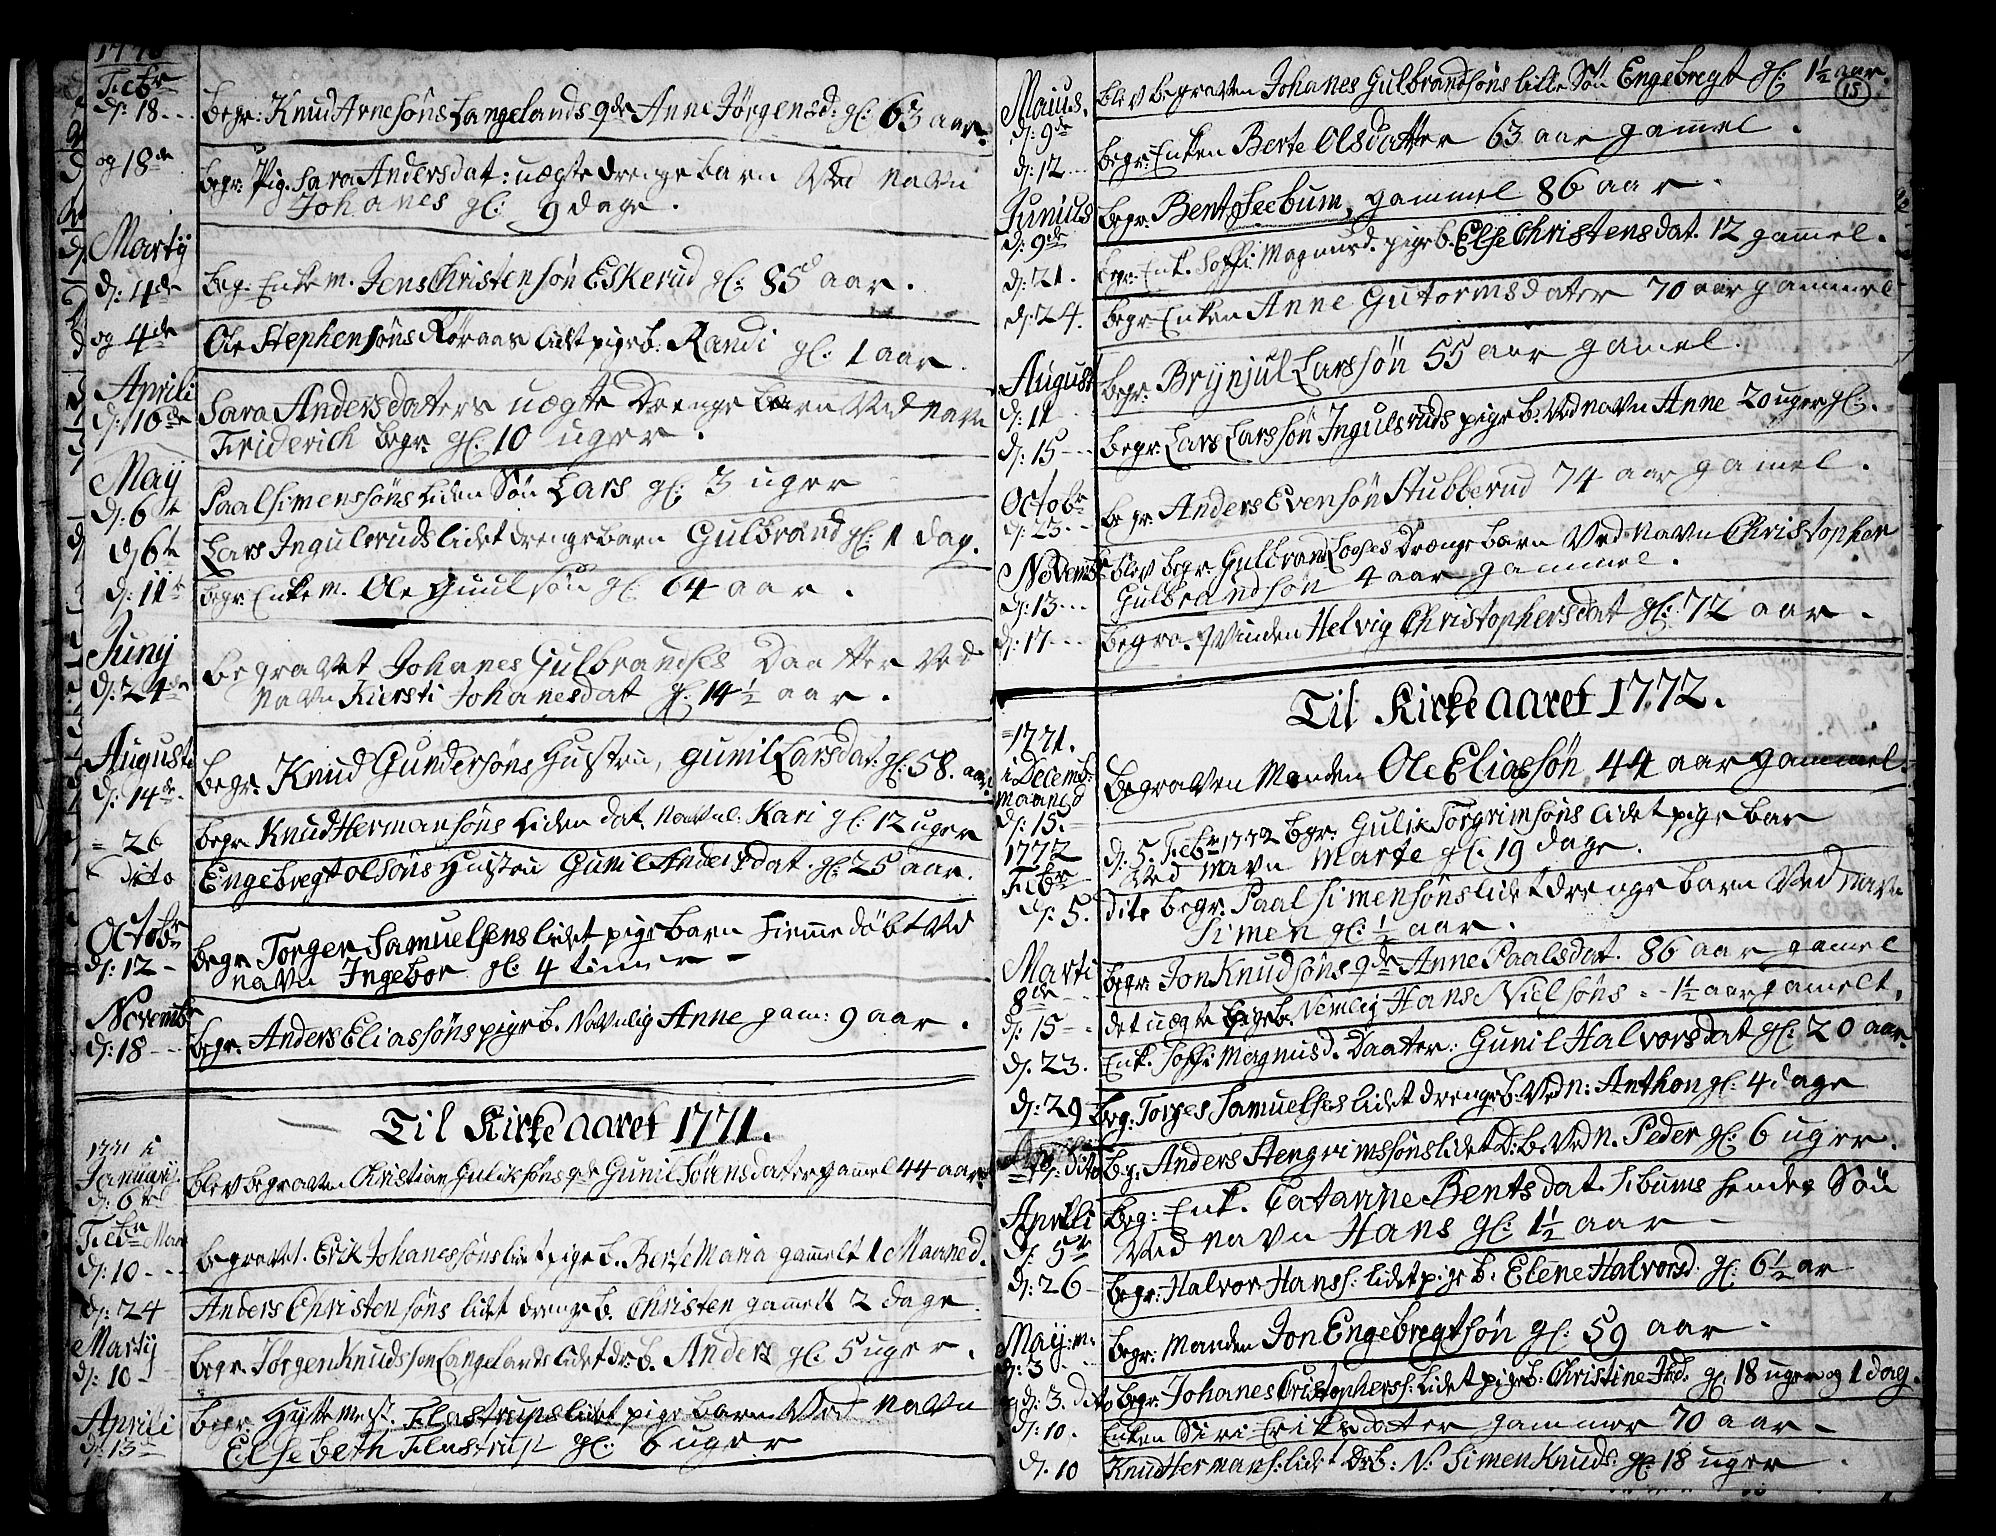 1770
Febr
d: 18 - - begr: Knud Arnesøns Langelands qde Anne Jørgensd: gl: 63 aar.
og 18de begr: Pig. Sara Andersdat: uægte drengebarn Ved navn
Johanes gl: 9 dage.
Martij
d: 4de beg: Enkem. Jens Christensøn Eskerud gl: 85 aar.
og 4de Ole Stephensøns Røraas lidt pigeb: Randi gl: 1 aar.
Aprili
d: 16de Sara Andersdaters uægte Drenge barn Ved navn
Friderich begr. gl: 10 uger.
Maij
d: 6te Paal Simensøns Liden Søn Lars gl: 3 uger
d 6te Lars Ingulsruds lidet drengebarn Gulbrand gl: 1 dag.
d: 11te begr: Enkem. Ole Guulsøn gl: 64 aar.
Junij
d: 24de begravet Johanes Gulbrandses Daatter Ved
navn Kiersti Johanesdat gl: 14½ aar.
Augusti
d: 14de begr: Knud Gundersøns Hustru, Gunil Larsdat: gl: 58. aar.
= 26 begr. Knud Hermansøns Liden dat. navnl. Kari gl: 12 uger
dito Engebregt olsøns Hustru Gunil Andersdat. gl: 25 aar.
Octobr
d: 12 - begr. Torger Samuelsens lidet pigebarn Hiemmedøbt Ved
navn Ingebor gl: 4 timer -
Novembr
d: 18 - - begr. Anders Eliassøns pigeb. Navnlig Anne gam: 9 aar.
Til Kirke aaret 1771.
1771 i
Januarij
d: 6te blev begraven Christian Gulichsøns qde Gunil Sørensdater gamel 44 aar.
Febr
d: 10 - - begravet. Erik Johanessøns lidet pigeb. Berte Maria gammelt 1 Maaned.
d: 24 Anders Christensøns lidet drengeb. Christen gammelt 2 dage.
Martij
d: 10 - begr. Jørgen Knudsson Langelands lidet drb. Anders gl: 5 uger.
Aprili
d: 13 begr: Hyttemest. Flastrups lidet pige barn Ved navn
Elsebeth Flastrup gl: 6 uger
15
Maius.
d: 9de blev begraven Johanes Gulbrandsøns lille Søn Engebregt gl: 1½ aar.
d: 12 begr: Enken Berte Olsdatter 63 aar gammel.
Junius
d: 9de begr: Bent Seebum, gammel 86 aar.
d: 21. begr: Enk. Soffi Magnusd. pigeb. Else Christensdat. 12 gamel.
d: 24. begr: Enken Anne Gutormsdater 70 aar gammel
August
d: 11 begr: Brynjul Larssøn 55 aar gamel.
d: 15 - - begr: Lars Larssøn Ingulsruds pigeb. Ved navn Anne 20 uger gl:.
Octobr
d: 23 - - begr. Anders Evensøn Stubberud 74 aar gamel.
Novembr
d: 13 - - blev begr. Gulbrand Loeses Drænge barn Ved navn Christopher
Gulbrandsøn 4 aar gammel.
d: 17 - - begra. qvinden Helvig Christophersdat gl: 72 aar.
Til Kirke aaret 1772.
=1771.
i Decemb:
maaned
d: 15. begraven Manden Ole Eliassøn 44 aar gammel.
1772
Febr
d: 5. d. 5. Febr 1772 begr. Gulik Torgrimsøns lidet pige bar
Ved navn Marte gl: 19 dage.
dito begr. Paal Simensøns lidet drenge barn Ved navn
Simen gl: ½ aar.
Marti
8de begr: Jon Knudsøns qde Anne Paalsdat. 86 aar gamel
d: 15 - - det uægte pigeb. Nemlig Hans Nielsøns = 1½ aar gamelt.
d: 23. Enk. Soffi Magnusd. Daatter: Gunil Halvorsdat gl: 20 aar.
d: 29 beg: Torges Samuelses lidet drengeb. Ved N: Anthon gl: 4 dage
= d: dito beg: Anders Stengrimssøns lidet D:b. Ved N. Peder gl: 6 uger.
Aprili
d: 5te beg: Enk. Catarine Bentsdat. Sibums hendes Søn
Ved navn Hans gl: 1½ aar -
d: 26 - begr: Halvor Hanss: lidet pige b: Elene Halvorsd: gl: 6½ ar
May: m:
d: 3 - - begr: Manden Jon Engebregtsøn gl: 59 aar -
og d: 3. dito begr: Johanes Cristophers: lidet pigeb: Christine Jhd. gl. 18 uger og 1 dag.
d: 10. Enken Siri Eriksdatter gammer 70 aar -
d: 10 Knud Hermans: lidet Drb: N: Simen Knuds: gl: 18 uger